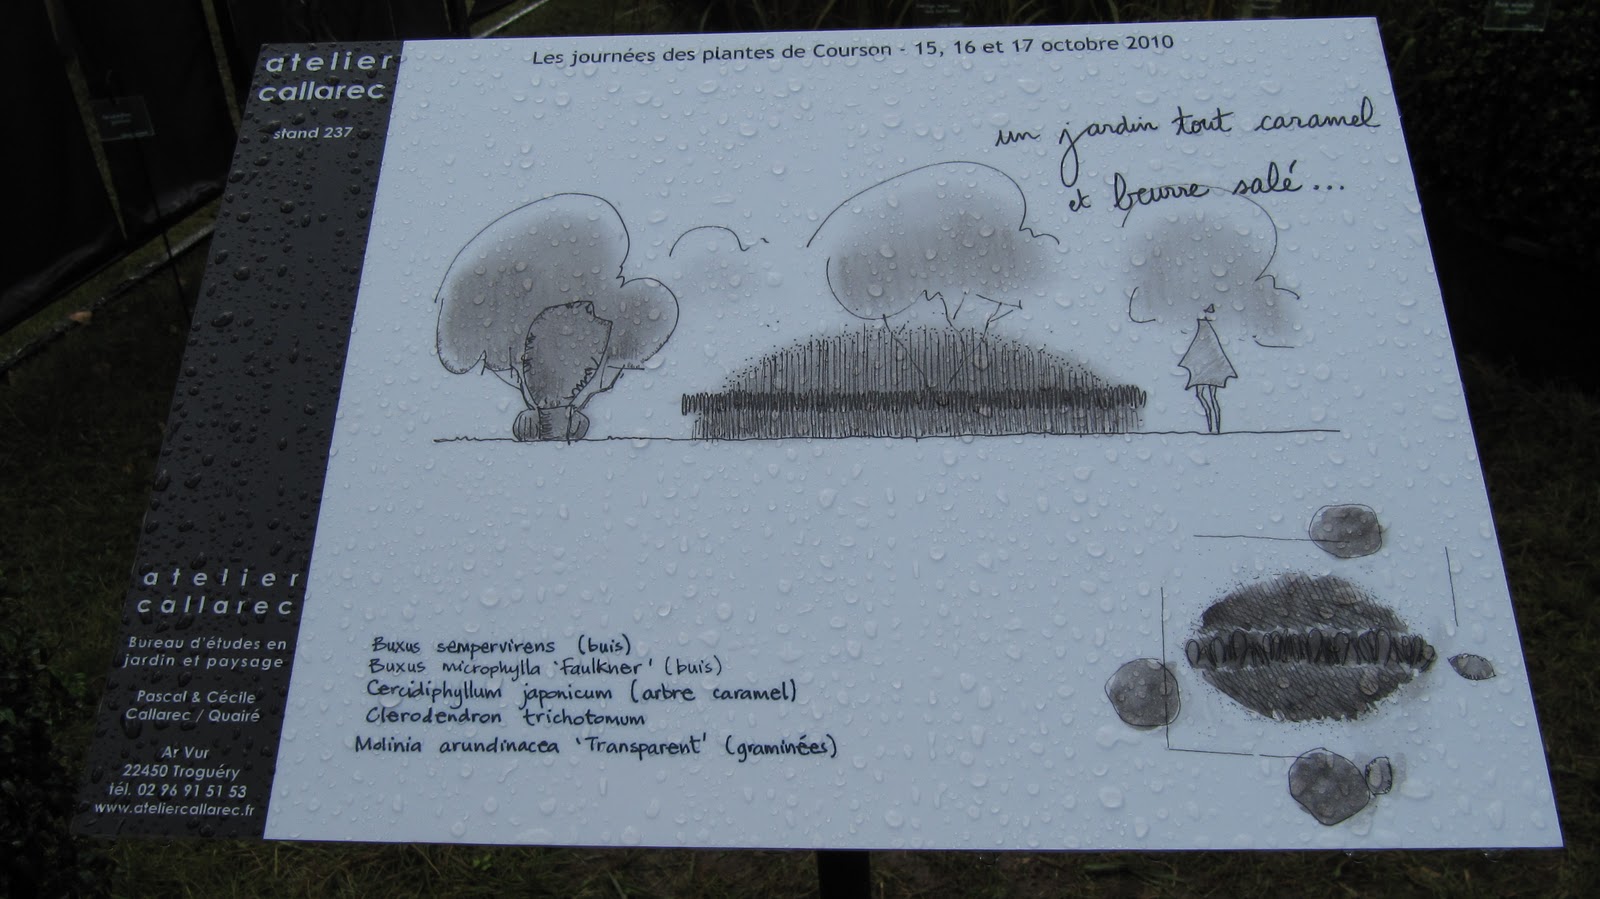 atelier
callarec
stand 237
Les journées des plantes de Courson - 15, 16 et 17 octobre 2010
un jardin tout caramel
et beurre salé...
Buxus sempervirens (buis)
Buxus microphylla 'Faulkner' (buis)
Cercidiphyllum japonicum (arbre caramel)
Clerodendron trichotomum
Molinia arundinacea 'Transparent' (graminées)
atelier
callarec
Bureau d'études en
jardin et paysage
Pascal & Cécile
Callarec / Quairé
Ar Vur
22450 Troguéry
tél. 02 96 91 51 53
www.ateliercallarec.fr